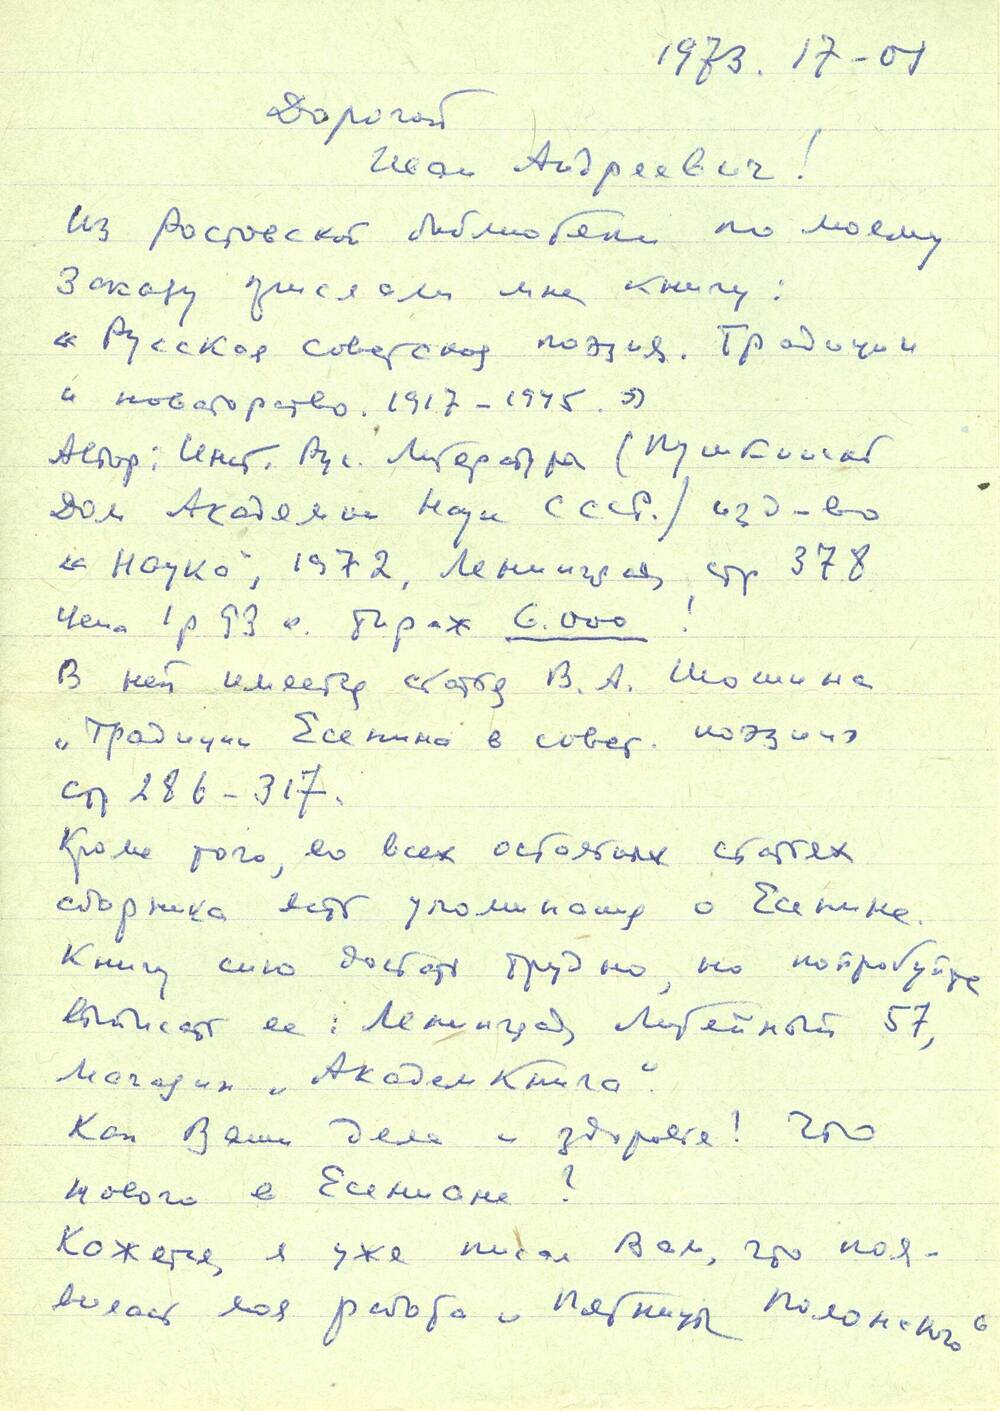 1973. 17-01
Дорогой
Иван Андреевич!
Из Ростовской библиотеки по моему
заказу прислали мне книгу:
« Русская советская поэзия. Традиции
и новаторство. 1917-1945. »
Автор: Инст. Рус. Литературы (Пушкинский
Дом Академии Наук СССР.) изд-во
« Наука", 1972, Ленинград, стр 378
Цена 1р 93 к. Тираж 6.000 !
В ней имеется статья В. А. Шошина
„Традиции Есенина в совет. поэзии"
стр 286-317.
Кроме того, во всех остальных статьях
сборника есть упоминания о Есенине.
Книгу сию достать трудно, но попробуйте
выписать ее: Ленинград, Литейный 57,
магазин „АкадемКнига".
Как Ваши дела и здоровье! Что
нового в Есениане?
Кажется, я уже писал Вам, что поя-
вилась моя работа „Пятницы Полонского"